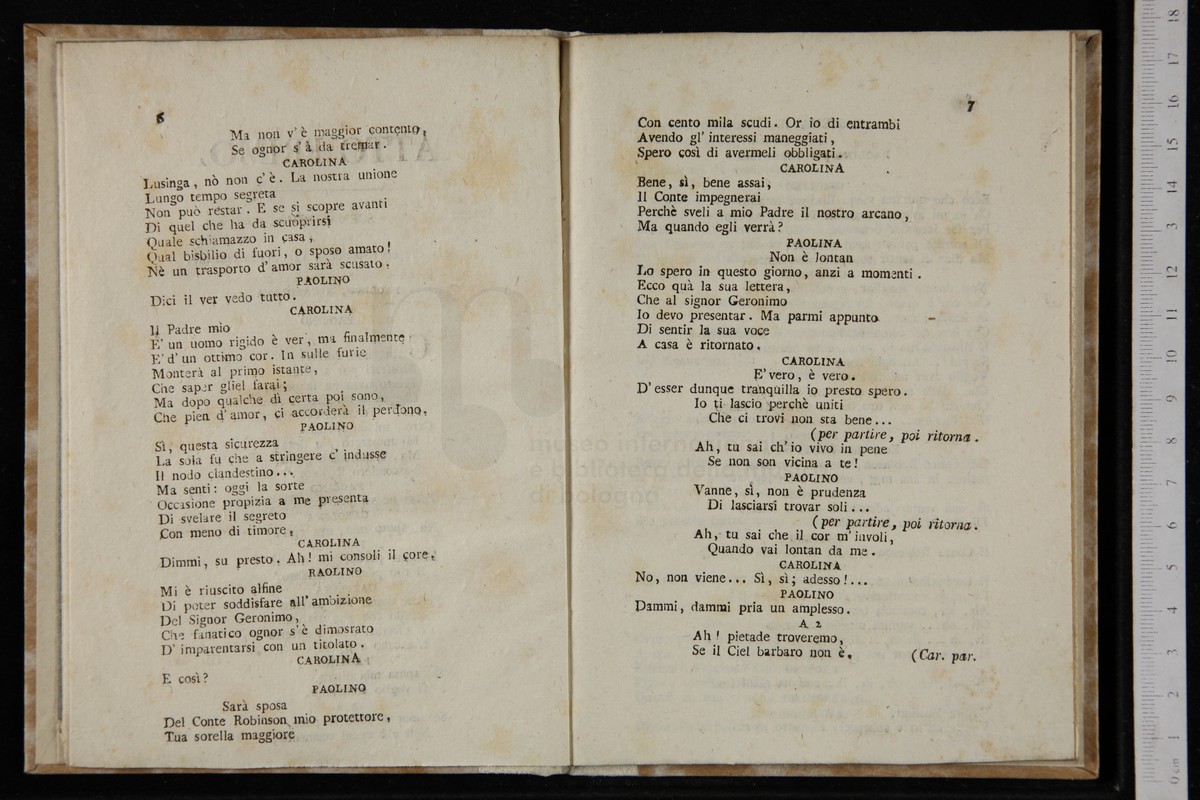 6
Ma non v'è maggior contento,
Se ognor s'à da tremar.
CAROLINA
Lusinga, nò non c'è. La nostra unione
Lungo tempo segreta
Non può restar. E se si scopre avanti
Di quel che ha da scuoprirsi
Quale schiamazzo in casa,
Qual bisbilio di fuori, o sposo amato!
Nè un trasporto d'amor sarà scusato.
PAOLINO
Dici il ver vedo tutto.
CAROLINA
Il Padre mio
E' un uomo rigido è ver, ma finalmente
E' d'un ottimo cor. In sulle furie
Monterà al primo istante,
Che saper gliel farai;
Ma dopo qualche dì certa poi sono,
Che pien d'amor, ci accorderà il perdono.
PAOLINO
Sì, questa sicurezza
La sola fu che a stringere c'indusse
Il nodo clandestino...
Ma senti: oggi la sorte
Occasione propizia a me presenta
Di svelare il segreto
Con meno di timore.
CAROLINA
Dimmi, su presto. Ah! mi consoli il core.
RAOLINO
Mi è riuscito alfine
Di poter soddisfare all'ambizione
Del Signor Geronimo,
Che fanatico ognor s'è dimosrato
D'imparentarsi con un titolato.
CAROLINA
E così?
PAOLINO
Sarà sposa
Del Conte Robinson mio protettore,
Tua sorella maggiore
7
Con cento mila scudi. Or io di entrambi
Avendo gl'interessi maneggiati,
Spero così di avermeli obbligati.
CAROLINA
Bene, sì, bene assai,
Il Conte impegnerai
Perchè sveli a mio Padre il nostro arcano,
Ma quando egli verrà?
PAOLINA
Non è lontan
Lo spero in questo giorno, anzi a momenti.
Ecco quà la sua lettera,
Che al signor Geronimo
Io devo presentar. Ma parmi appunto
Di sentir la sua voce
A casa è ritornato.
CAROLINA
E' vero, è vero.
D'esser dunque tranquilla io presto spero.
Io ti lascio perchè uniti
Che ci trovi non sta bene...
(per partire, poi ritorna.
Ah, tu sai ch'io vivo in pene
Se non son vicina a te!
PAOLINO
Vanne, sì, non è prudenza
Di lasciarsi trovar soli...
(per partire, poi ritorna.
Ah, tu sai che il cor m'involi,
Quando vai lontan da me.
CAROLINA
No, non viene... Sì, sì; adesso!...
PAOLINO
Dammi, dammi pria un amplesso.
A 2
Ah! pietade troveremo,
Se il Ciel barbaro non è. (Car. par.